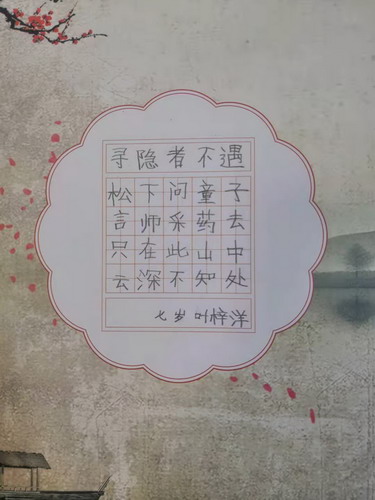 寻隐者不遇
松下问童子
言师采药去
只在此山中
云深不知处
七岁 叶梓洋